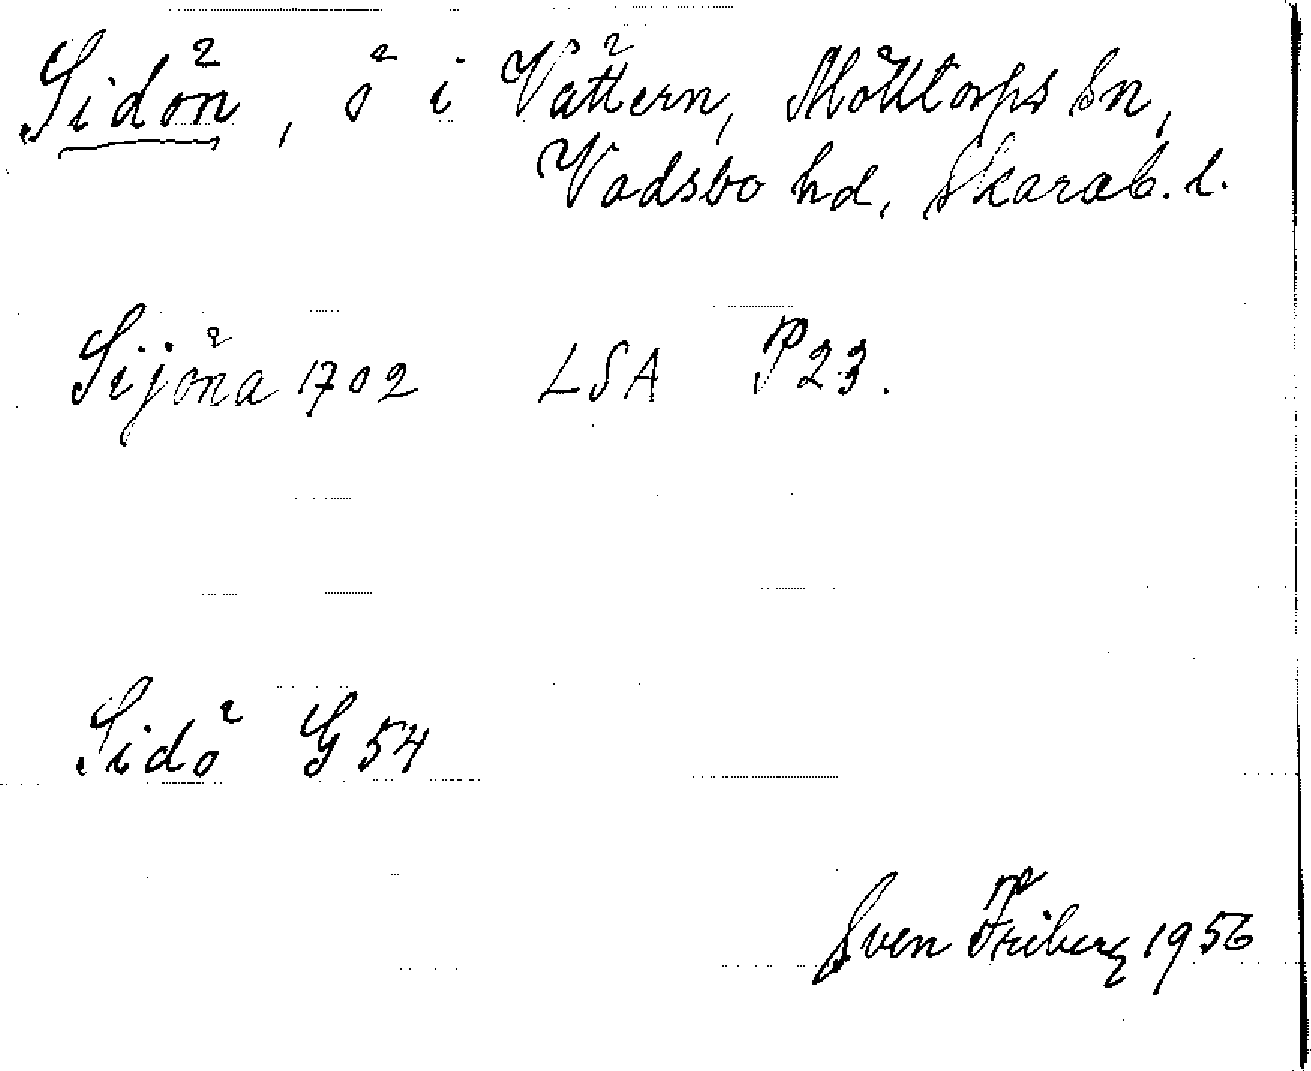 Sidön, ö i Vättern, Mölltorps sn,
Vadsbo hd, Skarab. l.
Sijöna 1702 LSA P23.
Sidö G 54
Sven Friberg 1956